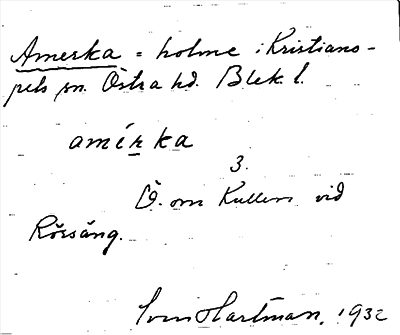 Amerka = holme i Kristiano-
pels sn. Östra hd. Blek. l.
amírka
3.
Ö. om Kullen vid
Rössäng.
Sven Hartman, 1932